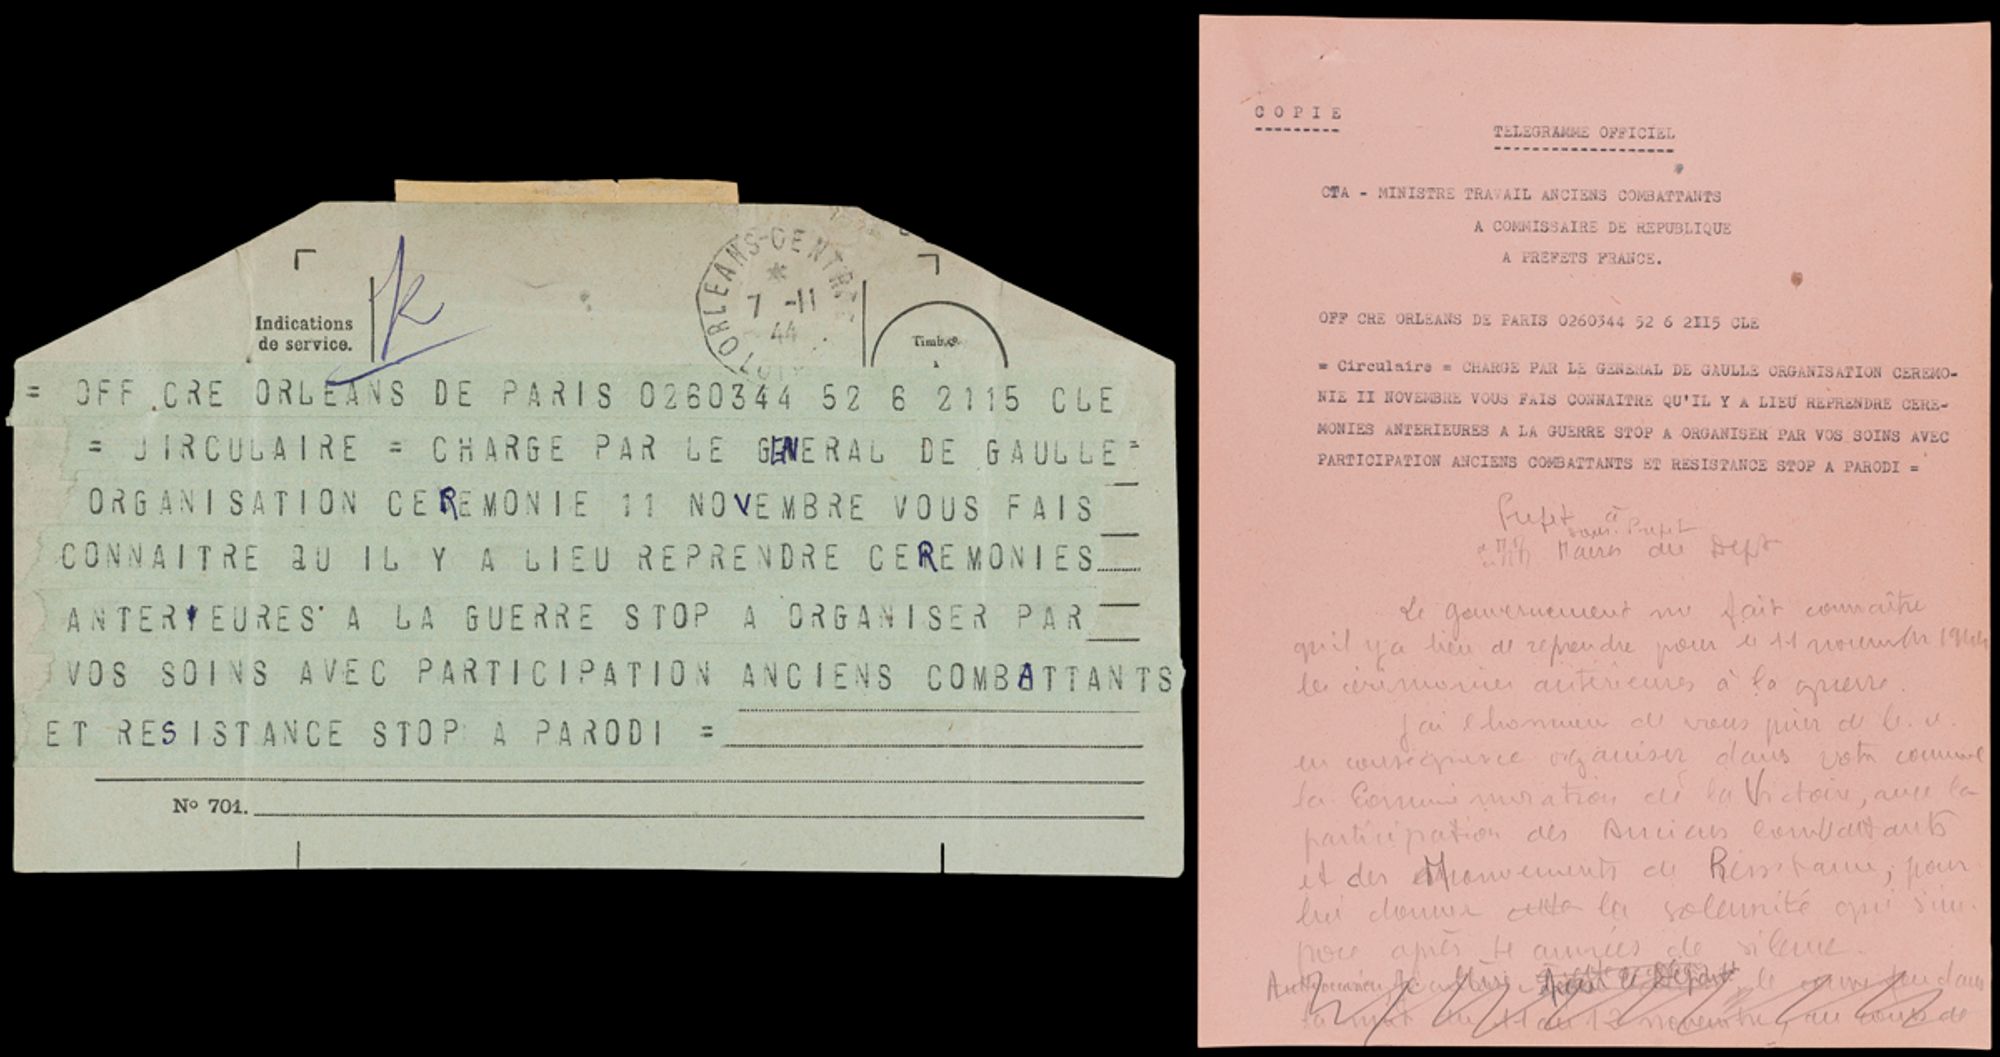 Indications
de service.
ORLEANS-CENTRE
7 -11
44
Timbre
= OFF CRE ORLEANS DE PARIS 0260344 52 6 2115 CLE
= CIRCULAIRE = CHARGE PAR LE GENERAL DE GAULLE =
ORGANISATION CEREMONIE 11 NOVEMBRE VOUS FAIS
CONNAITRE QU IL Y A LIEU REPRENDRE CEREMONIES
ANTERIEURES A LA GUERRE STOP A ORGANISER PAR
VOS SOINS AVEC PARTICIPATION ANCIENS COMBATTANTS
ET RESISTANCE STOP A PARODI =
Nº 701.
COPIE
TELEGRAMME OFFICIEL
CTA - MINISTRE TRAVAIL ANCIENS COMBATTANTS
A COMMISSAIRE DE REPUBLIQUE
A PREFETS FRANCE.
OFF CRE ORLEANS DE PARIS 0260344 52 6 2II5 CLE
= Circulaire = CHARGE PAR LE GENERAL DE GAULLE ORGANISATION CEREMO-
NIE II NOVEMBRE VOUS FAIS CONNAITRE QU'IL Y A LIEU REPRENDRE CERE-
MONIES ANTERIEURES A LA GUERRE STOP A ORGANISER PAR VOS SOINS AVEC
PARTICIPATION ANCIENS COMBATTANTS ET RESISTANCE STOP A PARODI =
Préfet à
sous-Préfet
Maires du Dept
Le gouvernement me fait connaître
qu'il y a lieu de reprendre pour le 11 novembre 1944
les cérémonies antérieures à la guerre.
J'ai l'honneur de vous prier de b. v.
en conséquence organiser dans votre commune
la Commémoration de la Victoire, avec la
participation des Anciens Combattants
et des Mouvements de Résistance, pour
lui donner la solennité qui s'im-
pose après 4 années de silence.
le couvre feu dans
la nuit du 11 au 12 novembre, au cours de